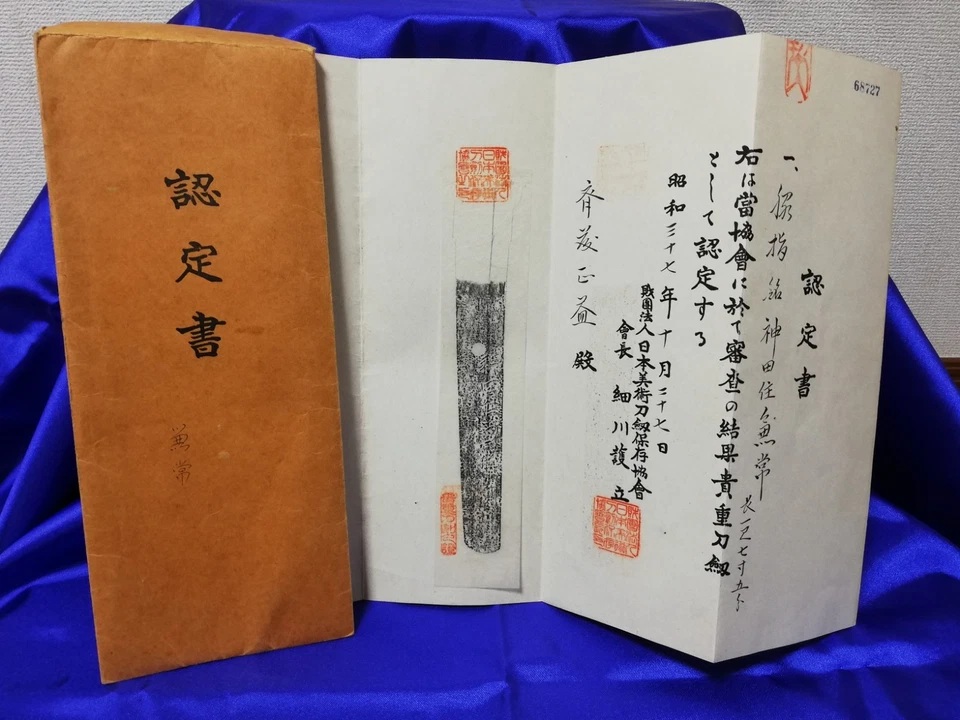 認定書
兼常
68727
認定書
一、脇指 銘 神田住兼常 長一尺七寸五分
右は當協會に於て審査の結果貴重刀劔
として認定する
昭和三十七年十月二十七日
財團法人日本美術刀劔保存協會
會長 細川護立
齊藤正益 殿